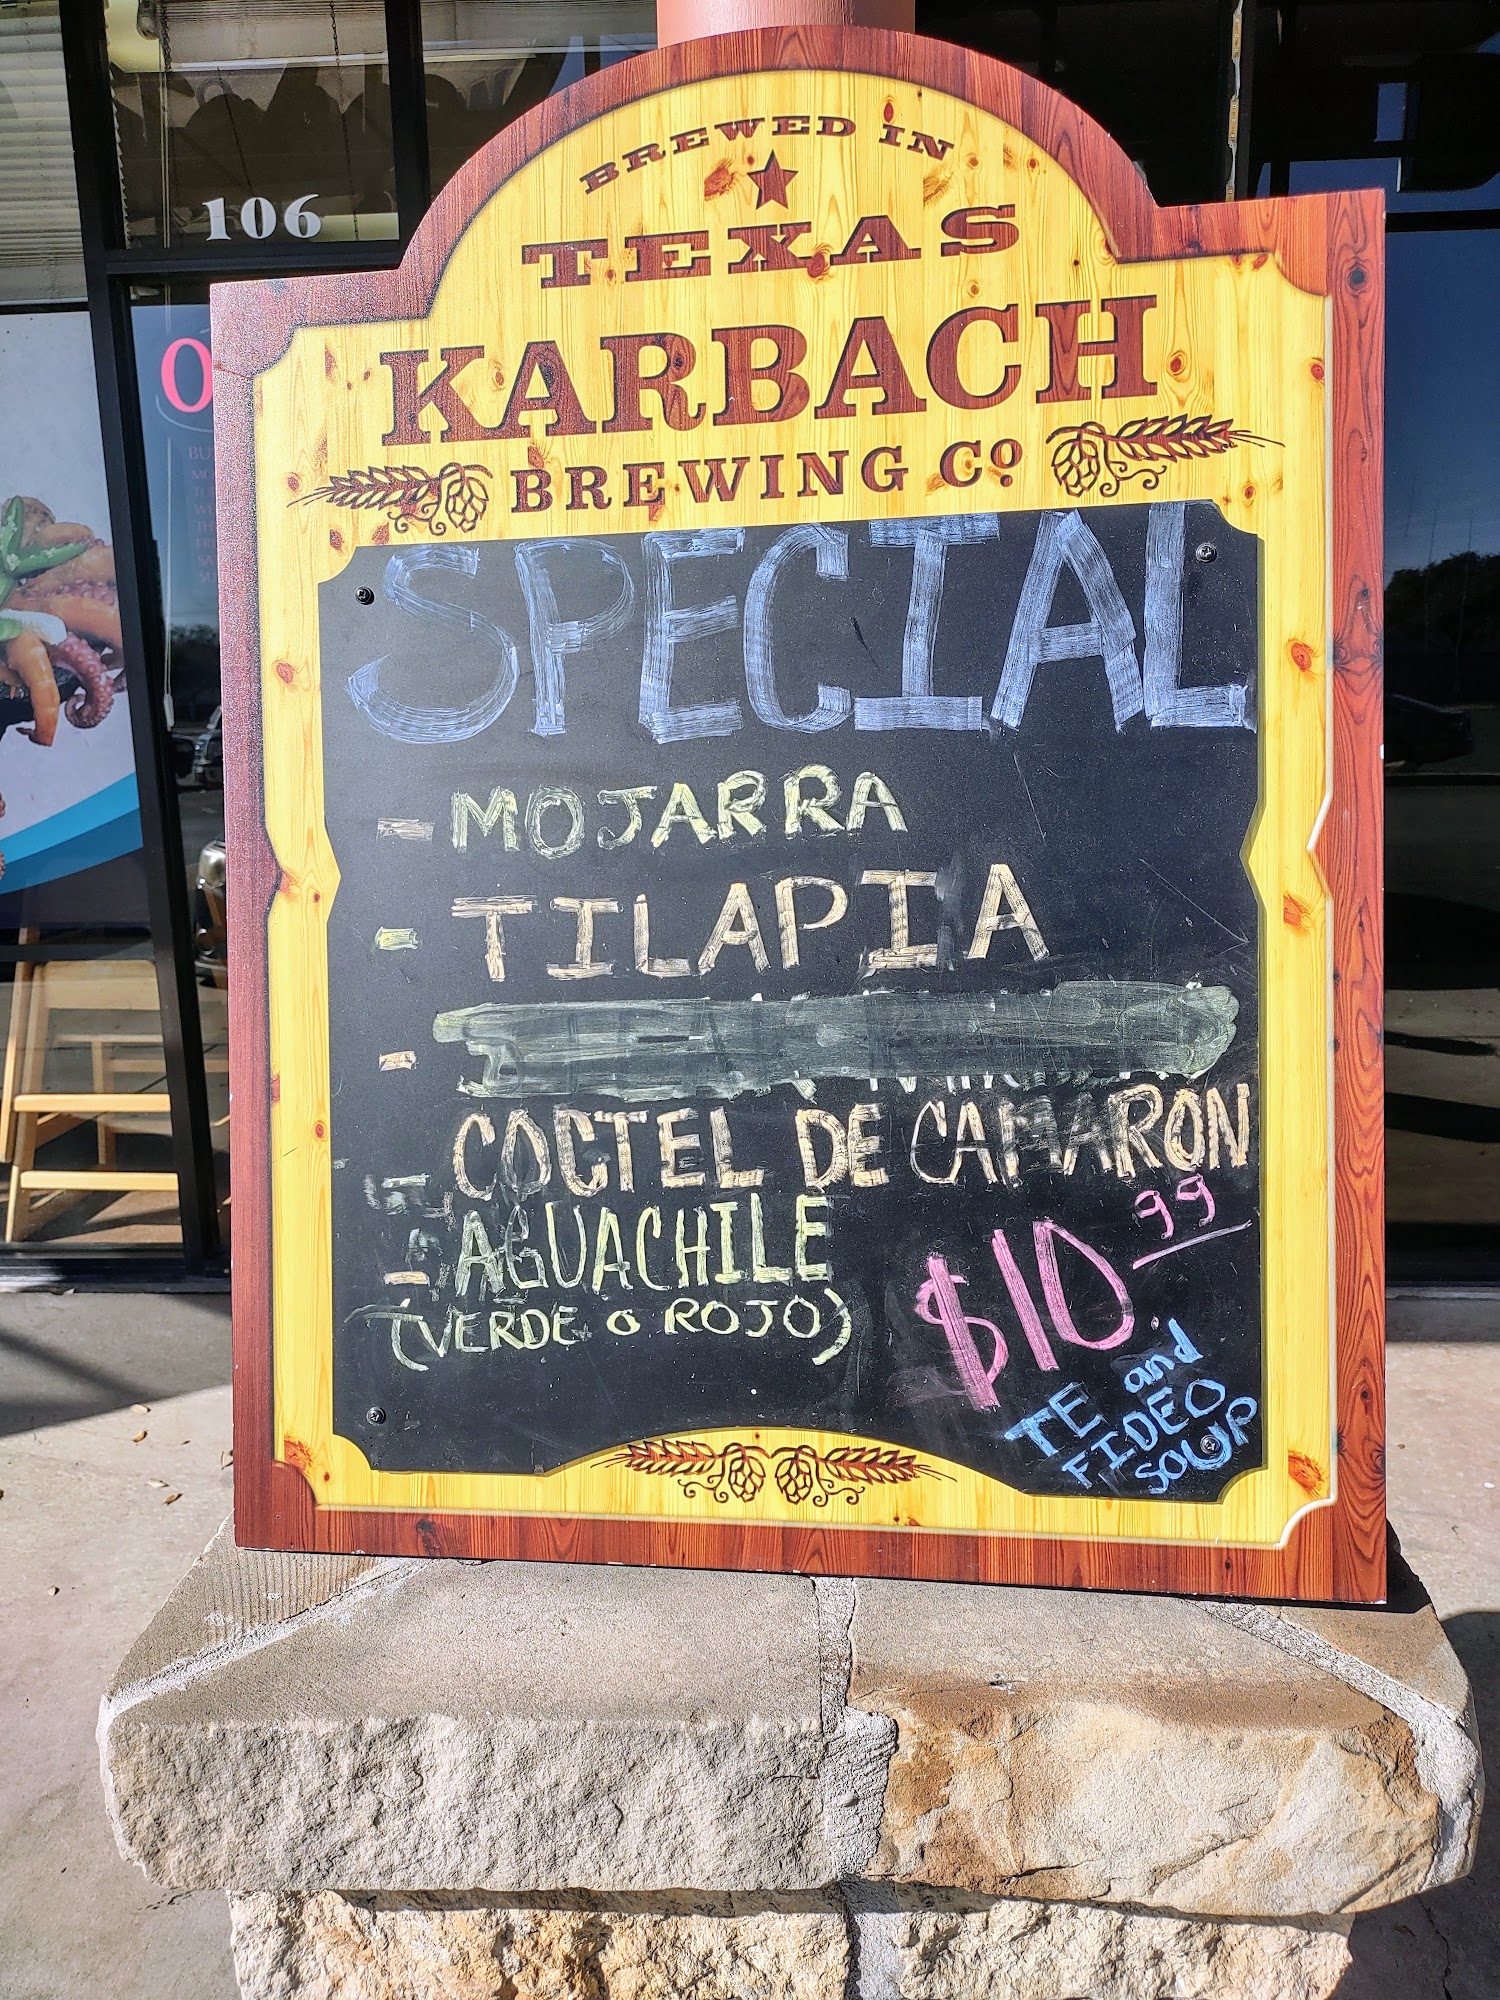 106
BREWED IN
TEXAS
KARBACH
BREWING Co
SPECIAL
- MOJARRA
- TILAPIA
-
- COCTEL DE CAMARON
- AGUACHILE
(VERDE o ROJO)
$10.99
TE and
FIDEO
SOUP